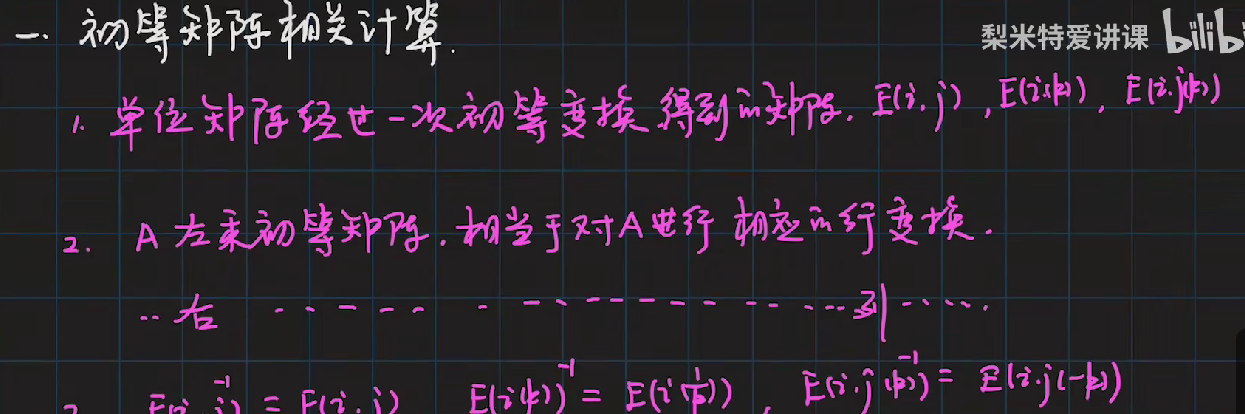 一. 初等矩阵相关计算.
梨米特爱讲课 bilib
1. 单位矩阵经过一次初等变换得到的矩阵. E(i,j), E(i(k)), E(i,j(k))
2. A左乘初等矩阵.相当于对A进行相应的行变换.
.. 右 ---------- 列 ....
E(i,j)⁻¹ = E(i,j) E(i(k))⁻¹ = E(i(1/k)), E(i,j(k))⁻¹ = E(i,j(-k))